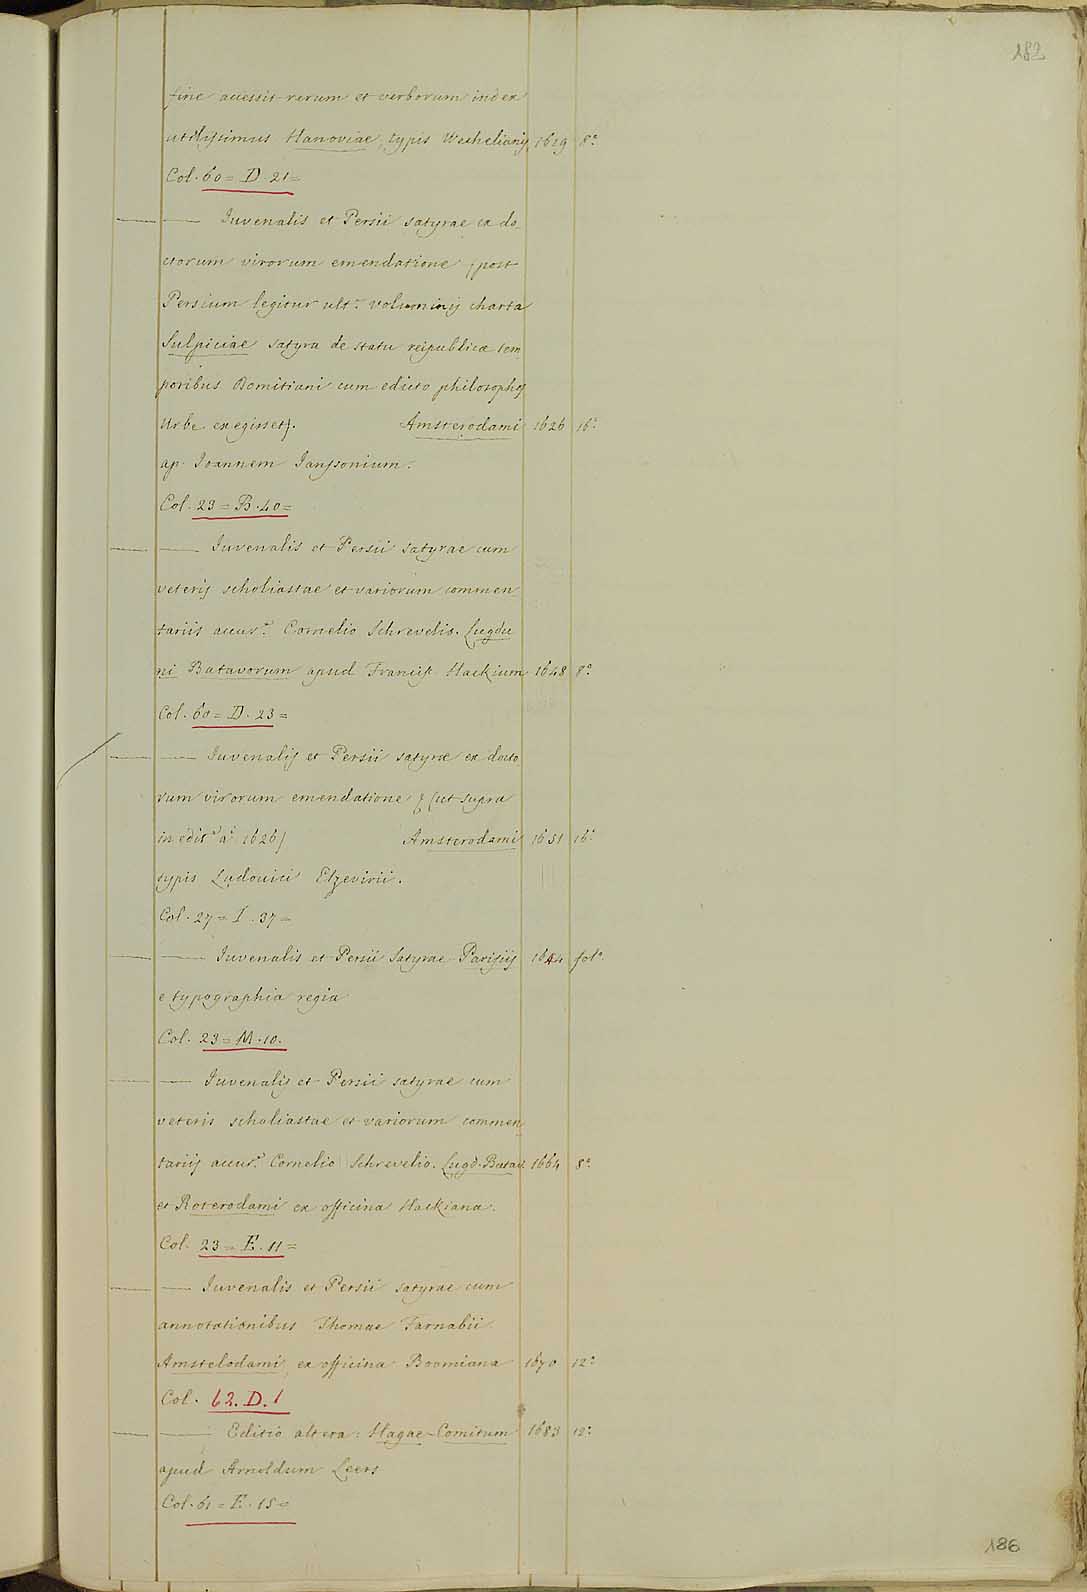 182
fine accessit rerum et verborum index
utilissimus Hanoviae, typis Wechelianis 1619 8.o
Col. 60 = D. 21 =
—— —— Iuvenalis et Persii satyrae ex do-
ctorum virorum emendatione (post
Persium legitur ult.a voluminis charta
Sulpiciae satyra de statu reipublicae tem
poribus Domitiani cum edicto philosophos
Urbe exegisset). Amsterodami 1626 16.o
ap. Ioannem Janssonium.
Col. 23 = B. 40 =
—— —— Iuvenalis et Persii satyrae cum
veteris scholiastae et variorum commen-
tariis accur.e Cornelio Schrevelis. Lugdu
ni Batavorum apud Francisc. Hackium 1648 8.o
Col. 60 = D. 23 =
—— —— Iuvenalis et Persii satyrae ex docto
rum virorum emendatione (ut supra
in edit.e a.i 1626) Amsterodami 1651 16.o
typis Ludovici Elzevirii.
Col. 27 = I. 37 =
—— —— Iuvenalis et Persii Satyrae Parisiis 1644 fol.o
e typographia regia
Col. 23 = M. 10.
—— —— Iuvenalis et Persii satyrae cum
veteris scholiastae et variorum commen
tariis accur.e Cornelio Schrevelio. Lugd. Batav. 1664 8.o
et Roterodami ex officina Hackiana.
Col. 23 = E. 11 =
—— —— Iuvenalis et Persii satyrae cum
annotationibus Thomae Farnabii
Amstelodami, ex officina Boomiana 1670 12.o
Col. 62. D. 1
—— —— Editio altera: Hagae-Comitum 1683 12.o
apud Arnoldum Leers
Col. 61 = E. 15 =
186